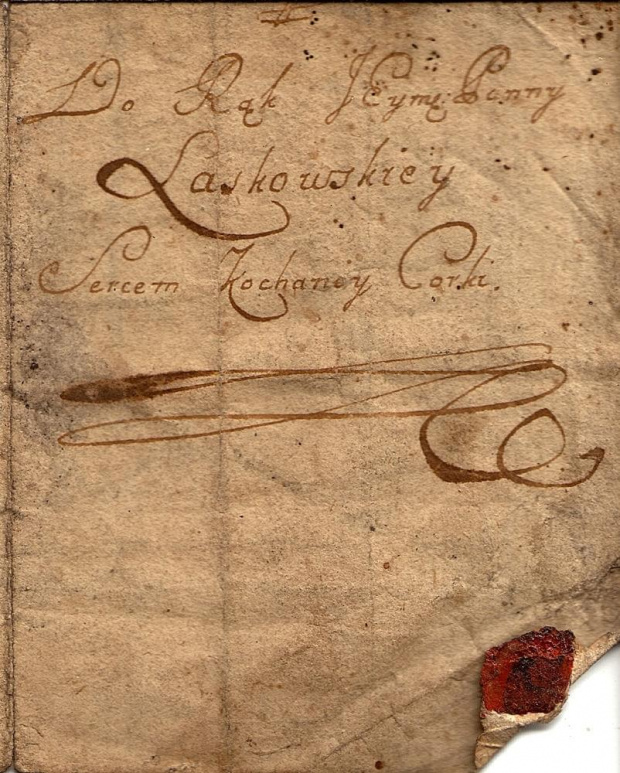 Do Rąk JEymę Panny
Laskowskiey
Sercem Kochaney Corki.